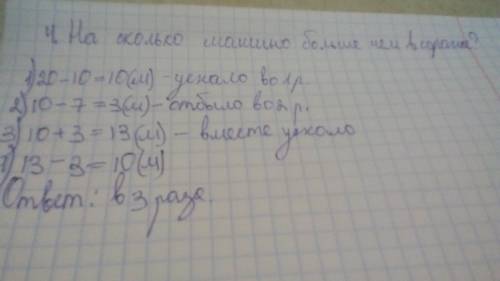 4. На сколько машино больше чем во
1) 20 - 10 = 10 (м) - уехало во 1 р.
2) 10 - 7 = 3 (м) - отбыло во 2 р.
3) 10 + 3 = 13 (м) - вместе уехало
4) 13 - 3 = 10 (м)
Ответ: в 3 раза.